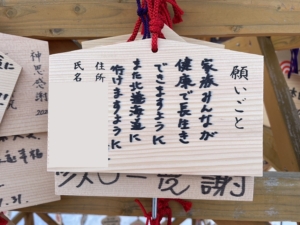 願いごと
家族みんなが
健康で長生き
できますように
また北海道に
行けますように
住所
氏名
神恩感謝
謝